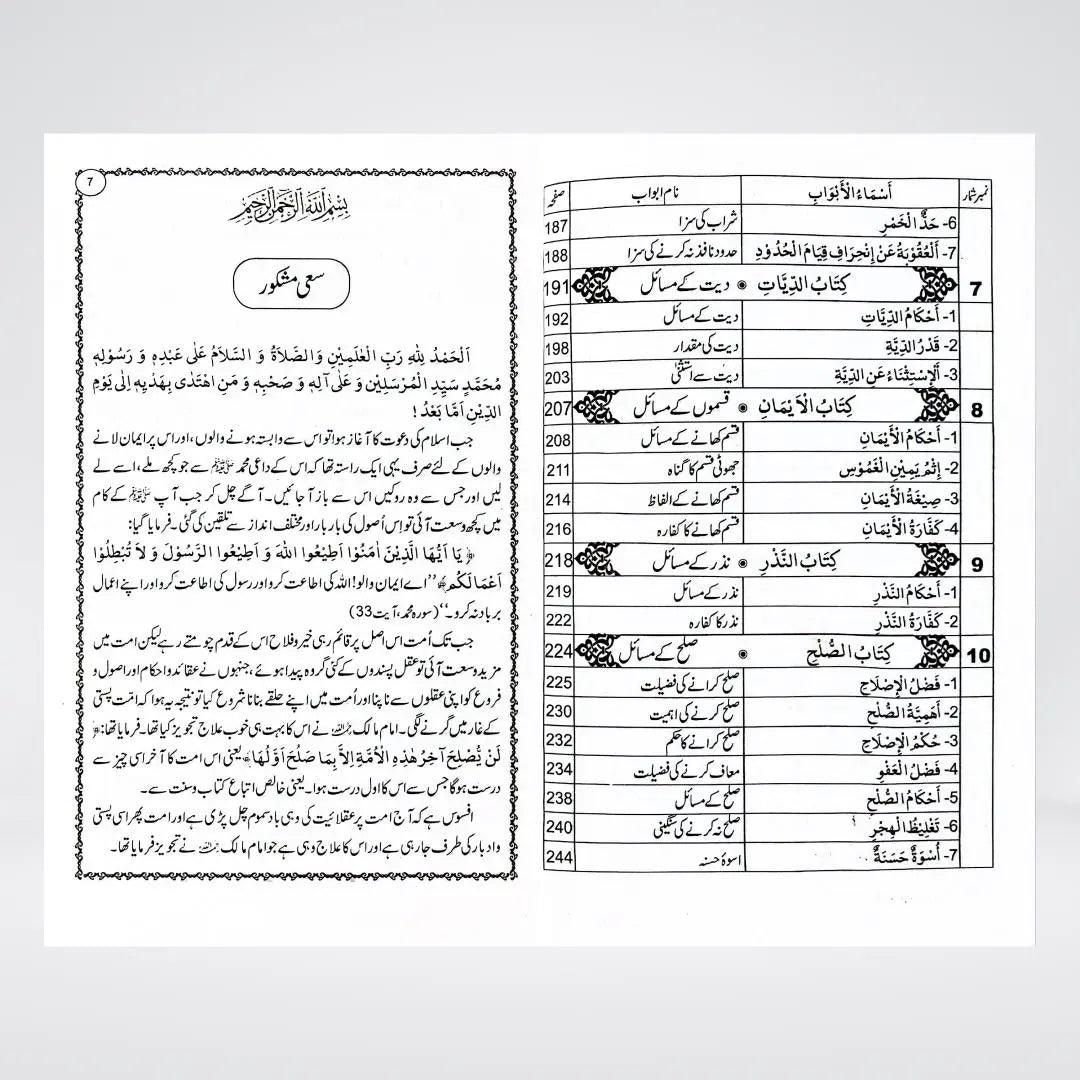 نمبر شمار أَسْمَاءُ الْأَبْوَابِ نام ابواب صفحہ
6- حَدُّ الْخَمْرِ شراب کی سزا 187
7- اَلْعُقُوبَةُ عَنْ إِنْحِرَافِ قِيَامِ الْحُدُوْدِ حدود نافذ نہ کرنے کی سزا 188
7 كِتَابُ الدِّيَّاتِ ◉ دیت کے مسائل 191
1- أَحْكَامُ الدِّيَّاتِ دیت کے مسائل 192
2- قَدْرُ الدِّيَةِ دیت کی مقدار 198
3- اَلْإِسْتِثْنَاءُ عَنِ الدِّيَةِ دیت سے استثنیٰ 203
8 كِتَابُ الْاَيْمَانِ ◉ قسموں کے مسائل 207
1- أَحْكَامُ الْأَيْمَانِ قسم کھانے کے مسائل 208
2- إِثْمُ يَمِيْنِ الْغَمُوْسِ جھوٹی قسم کا گناہ 211
3- صِيْغَةُ الْأَيْمَانِ قسم کھانے کے الفاظ 214
4- كَفَّارَةُ الْأَيْمَانِ قسم کھانے کا کفارہ 216
9 كِتَابُ النَّذْرِ ◉ نذر کے مسائل 218
1- أَحْكَامُ النَّذْرِ نذر کے مسائل 219
2- كَفَّارَةُ النَّذْرِ نذر کا کفارہ 222
10 كِتَابُ الصُّلْحِ ◉ صلح کے مسائل 224
1- فَضْلُ الْإِصْلَاحِ صلح کرانے کی فضیلت 225
2- أَهَمِيَّةُ الصُّلْحِ صلح کرنے کی اہمیت 230
3- حُكْمُ الْإِصْلَاحِ صلح کرانے کا حکم 232
4- فَضْلُ الْعَفْوِ معاف کرنے کی فضیلت 234
5- أَحْكَامُ الصُّلْحِ صلح کے مسائل 238
6- تَغْلِيْظُ الْهِجْرِ صلح نہ کرنے کی سنگینی 240
7- أُسْوَةٌ حَسَنَةٌ اسوۂ حسنہ 244
7
بِسْمِ اللهِ الرَّحْمٰنِ الرَّحِيْمِ
سعی مشکور
اَلْحَمْدُ لِلّٰهِ رَبِّ الْعٰلَمِيْنَ وَالصَّلَاةُ وَ السَّلَامُ عَلٰى عَبْدِهٖ وَ رَسُوْلِهٖ
مُحَمَّدٍ سَيِّدِ الْمُرْسَلِيْنَ وَ عَلٰى آلِهٖ وَ صَحْبِهٖ وَ مَنِ اهْتَدٰى بِهَدْيِهٖ اِلٰى يَوْمِ
الدِّيْنِ اَمَّا بَعْدُ !
جب اسلام کی دعوت کا آغاز ہوا تو اس سے وابستہ ہونے والوں، اور اس پر ایمان لانے
والوں کے لئے صرف یہی ایک راستہ تھا کہ اس کے داعی محمد ﷺ سے جو کچھ ملے، اسے لے
لیں اور جس سے وہ روکیں اس سے باز آ جائیں۔ آگے چل کر جب آپ ﷺ کے کام
میں کچھ وسعت آئی تو اِس اُصول کی بار بار اور مختلف انداز سے تلقین کی گئی۔ فرمایا گیا:
﴿ يَا اَيُّهَا الَّذِيْنَ اٰمَنُوْا اَطِيْعُوا اللّٰهَ وَ اَطِيْعُوا الرَّسُوْلَ وَ لَا تُبْطِلُوْا
اَعْمَالَكُمْ ﴾ ’’اے ایمان والو! اللہ کی اطاعت کرو اور رسول کی اطاعت کرو اور اپنے اعمال
برباد نہ کرو۔‘‘ (سورہ محمد، آیت 33)
جب تک اُمت اس اصل پر قائم رہی خیر و فلاح اس کے قدم چومتے رہے لیکن امت میں
مزید وسعت آئی تو عقل پسندوں کے کئی گروہ پیدا ہوئے، جنہوں نے عقائد و احکام اور اصول و
فروع کو اپنی عقلوں سے ناپنا اور اُمت میں اپنے حلقے بنانا شروع کیا تو نتیجہ یہ ہوا کہ امّت پستی
کے غار میں گرنے لگی۔ امام مالک رحمہ اللہ نے اس کا بہت ہی خوب علاج تجویز کیا تھا۔ فرمایا تھا: ﴿
لَنْ تُّصْلِحَ آخِرُ هٰذِهِ الْاُمَّةِ اِلَّا بِمَا صَلُحَ اَوَّلُهَا ﴾ یعنی اس امت کا آخر اسی چیز سے
درست ہوگا جس سے اس کا اول درست ہوا۔ یعنی خالص اتباع کتاب و سنت سے۔
افسوس ہے کہ آج امت پر عقلائیت کی وہی باد سموم چل پڑی ہے اور امت پھر اسی پستی
وادبار کی طرف جا رہی ہے اور اس کا علاج وہی ہے جو امام مالک رحمہ اللہ نے تجویز فرمایا تھا۔